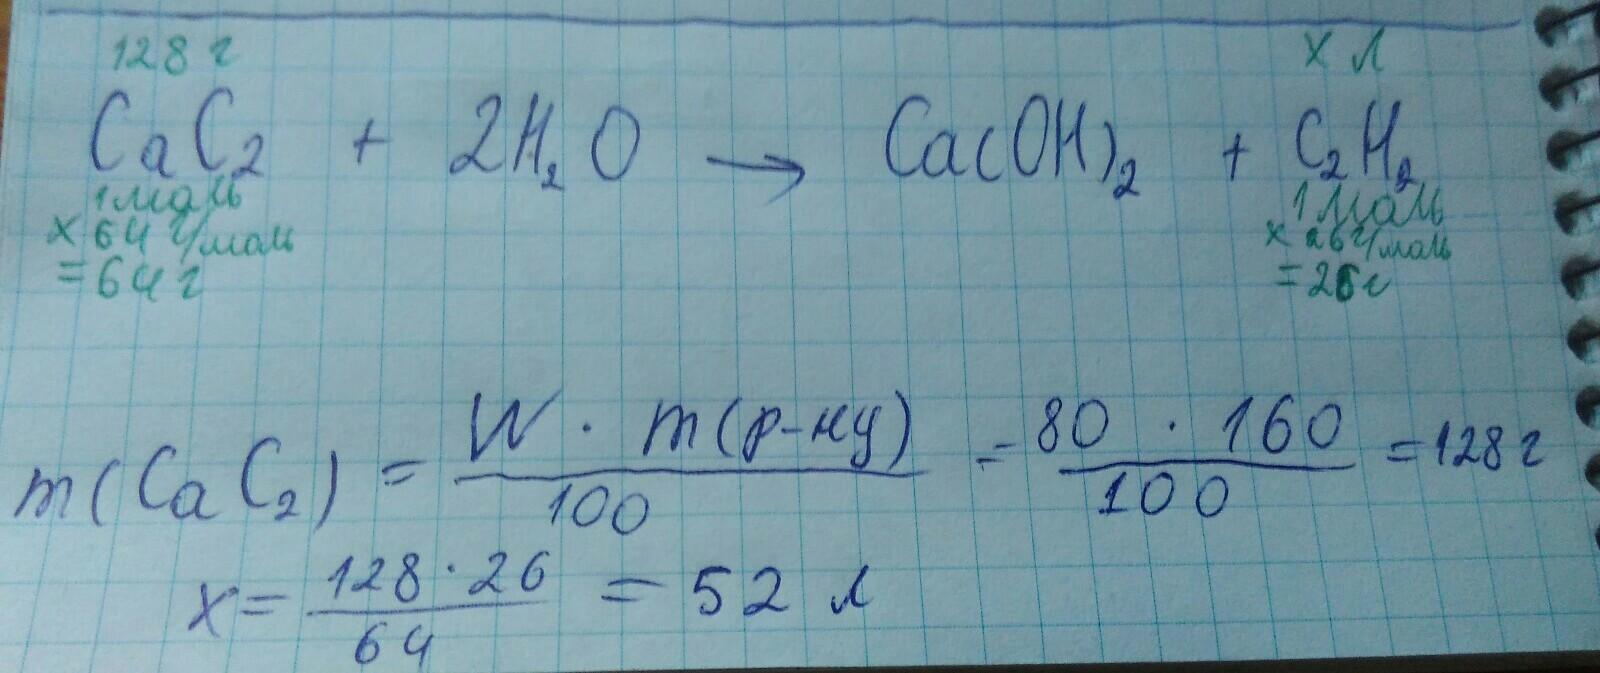 128 г х л
CaC₂ + 2H₂O → Ca(OH)₂ + C₂H₂
1моль 1моль
х 64 г/моль х 26 г/моль
= 64 г = 26 г
m(CaC₂) = W · m(р-ну) / 100 = 80 · 160 / 100 = 128 г
x = 128 · 26 / 64 = 52 л